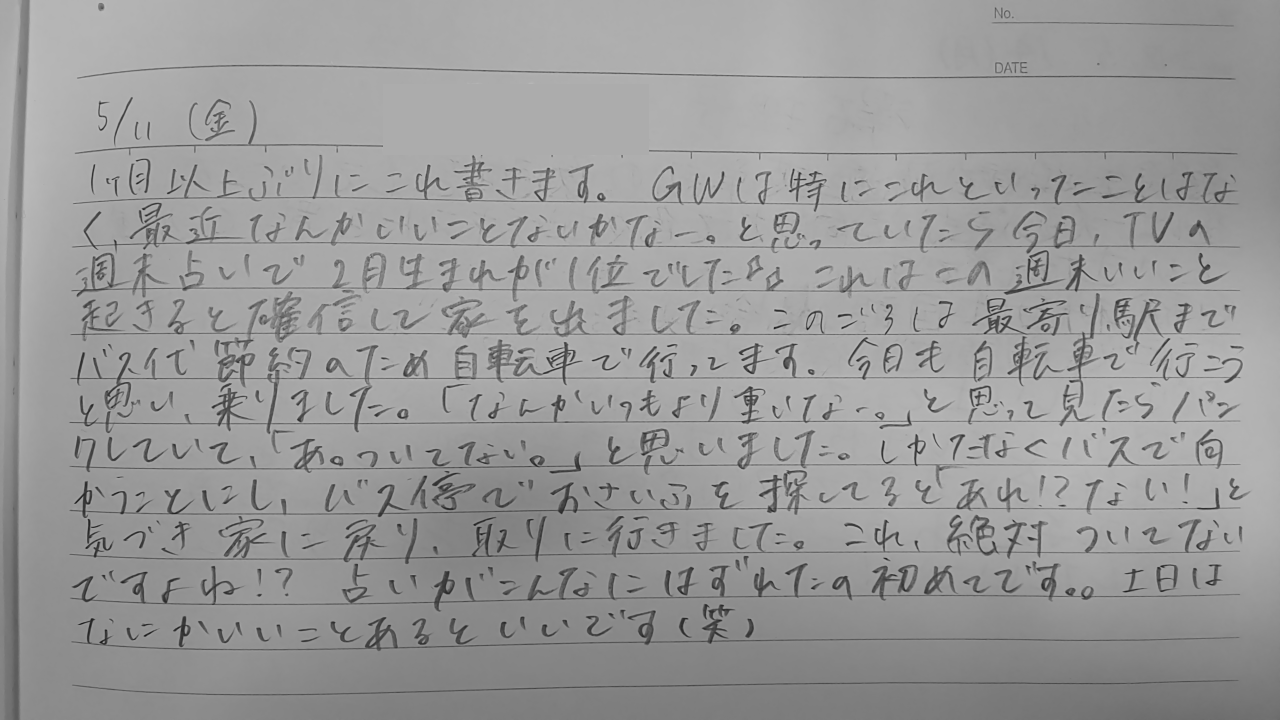 No.
DATE
5/11 (金)
1ヶ月以上ぶりにこれ書きます。GWは特にこれといったことはな
く、最近なんかいいことないかなー。と思っていたら今日、TVの
週末占いで2月生まれが1位でした。これはこの週末いいこと
起きると確信して家を出ました。このごろは最寄り駅まで
バス代節約のため自転車で行ってます。今日も自転車で行こう
と思い、乗りました。「なんかいつもより重いなー。」と思って見たらパン
クしていて、「あ。ついてない。」と思いました。しかたなくバスで向
かうことにし、バス停でおさいふを探してると「あれ!?ない!」と
気づき家に戻り、取りに行きました。これ、絶対ついてない
ですよね!? 占いがこんなにはずれたの初めてです。。土日は
なにかいいことあるといいです(笑)